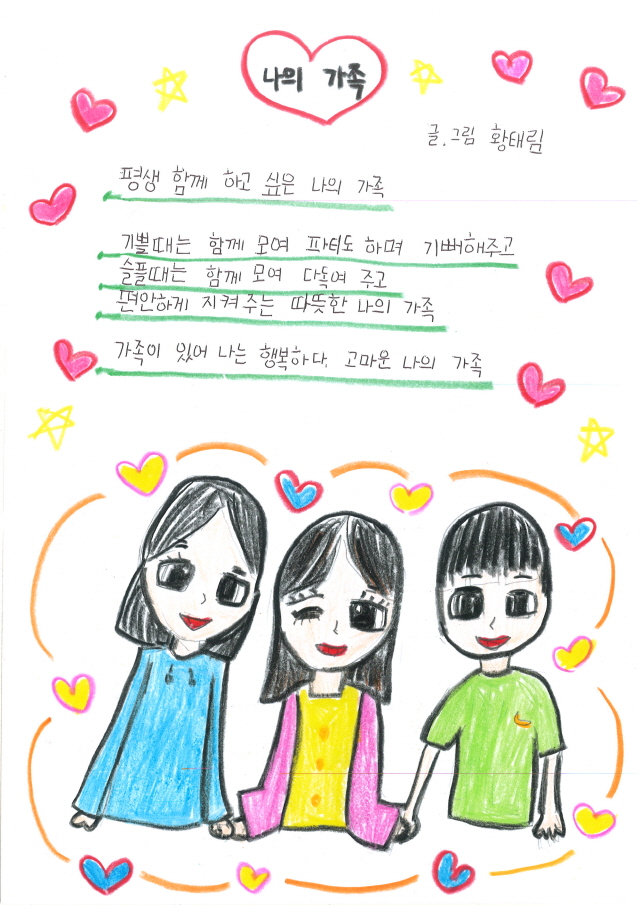 나의 가족
글.그림 황태림
평생 함께 하고 싶은 나의 가족
기쁠때는 함께 모여 파티도 하며 기뻐해주고
슬플때는 함께 모여 다독여 주고
편안하게 지켜주는 따뜻한 나의 가족
가족이 있어 나는 행복하다. 고마운 나의 가족